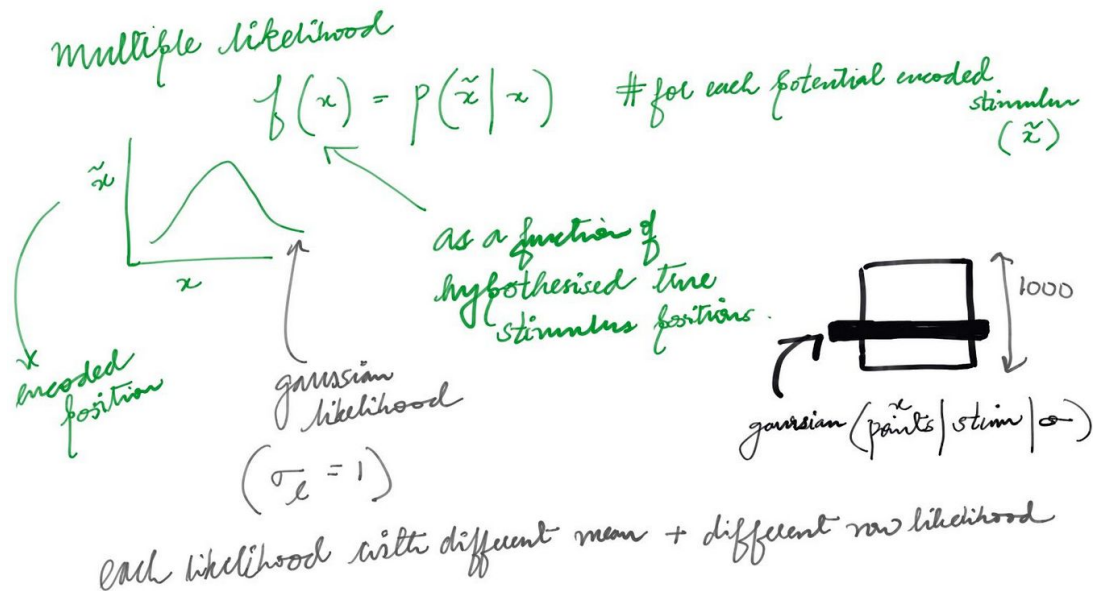 multiple likelihood
f(x) = p(x̃|x) # for each potential encoded
stimulus
(x̃)
x̃
x
as a function of
hypothesised true
stimulus positions.
encoded
position
gaussian
likelihood
(σₗ = 1)
1000
x̃
gaussian (points | stim | σ)
each likelihood with different mean + different row likelihood